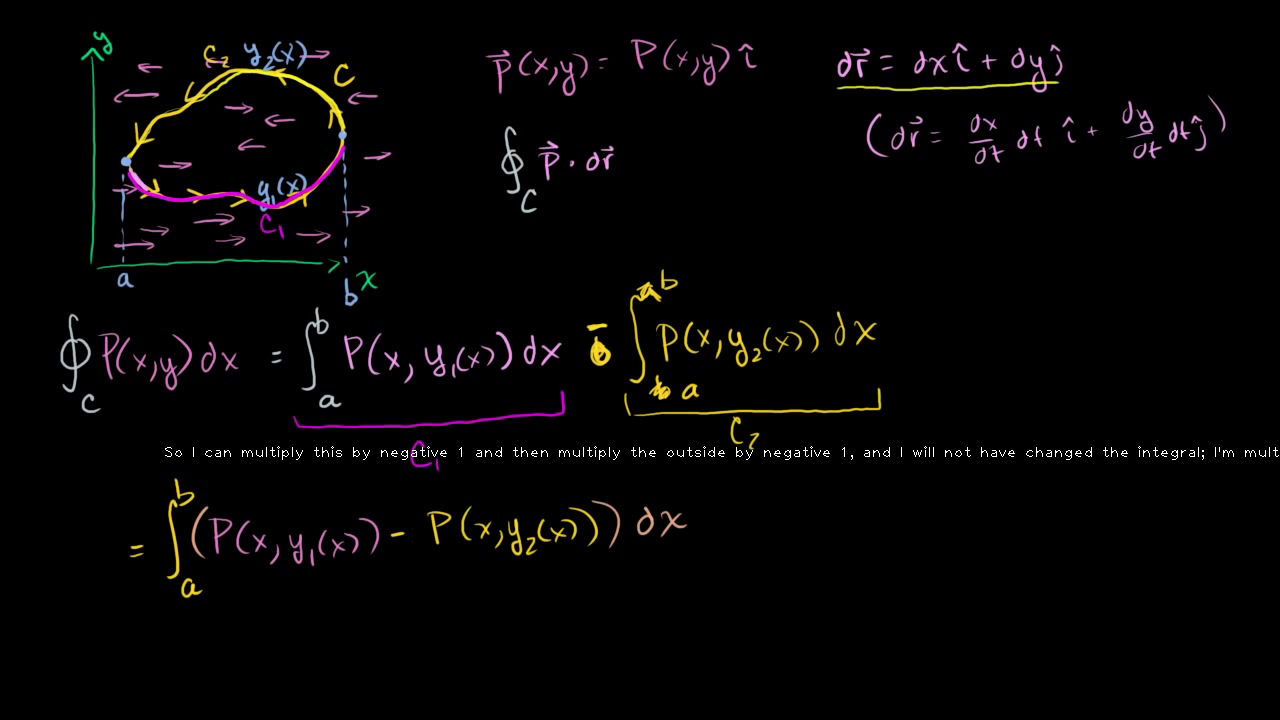 y
C₂ y₂(x) C
P⃗(x,y) = P(x,y) î
dr⃗ = dx î + dy ĵ
(dr⃗ = dx/dt dt î + dy/dt dt ĵ)
∮_C P⃗ · dr⃗
y₁(x)
C₁
a b x
∮_C P(x,y) dx = ∫_a^b P(x, y₁(x)) dx - ∫_a^b P(x, y₂(x)) dx
C₁ C₂
So I can multiply this by negative 1 and then multiply the outside by negative 1, and I will not have changed the integral; I'm mult
= ∫_a^b (P(x, y₁(x)) - P(x, y₂(x))) dx